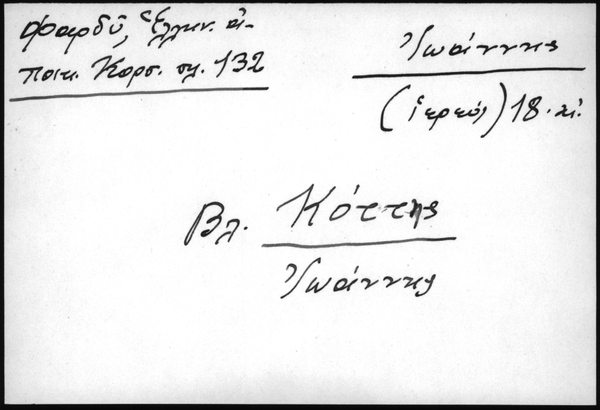 Φαρδῦ, Ἑλλην. ἀ-
ποικ. Κορσ. σλ. 132
Ἰωάννης
(ἱερεύς) 18. αἰ.
Βλ. Κόττης
Ἰωάννης